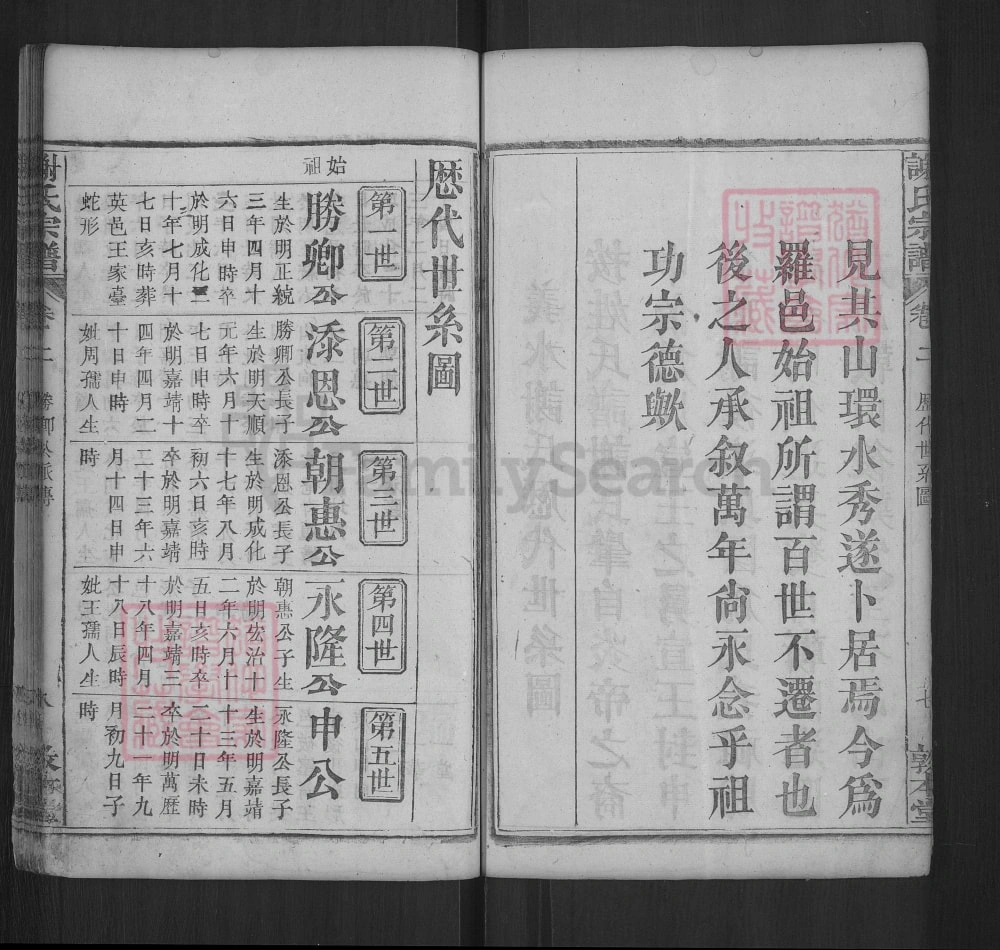 謝氏宗譜
卷二
歷代世系圖
敦本堂
見其山環水秀遂卜居焉今為
羅邑始祖所謂百世不遷者也
後之人承叙萬年尚永念乎祖
功宗德歟
歷代世系圖
第一世
始祖
勝卿公
生於明正統
三年四月十
六日申時卒
於明成化二
十年七月十
七日亥時葬
英邑王家臺
蛇形
第二世
添恩公
勝卿公長子
生於明天順
元年六月十
七日申時卒
於明嘉靖十
四年四月二
十日申時
妣周孺人生
第三世
朝惠公
添恩公長子
生於明成化
十七年八月
初六日亥時
卒於明嘉靖
二十三年六
月十四日申
時
第四世
永隆公
朝惠公子生
於明宏治十
二年六月十
五日亥時卒
於明嘉靖三
十八年四月
十八日辰時
妣王孺人生
第五世
申公
永隆公長子
生於明嘉靖
十三年五月
二十日未時
卒於明萬歷
二十一年九
月初九日子
時
謝氏宗譜
卷二
勝卿公派傳
FamilySearch